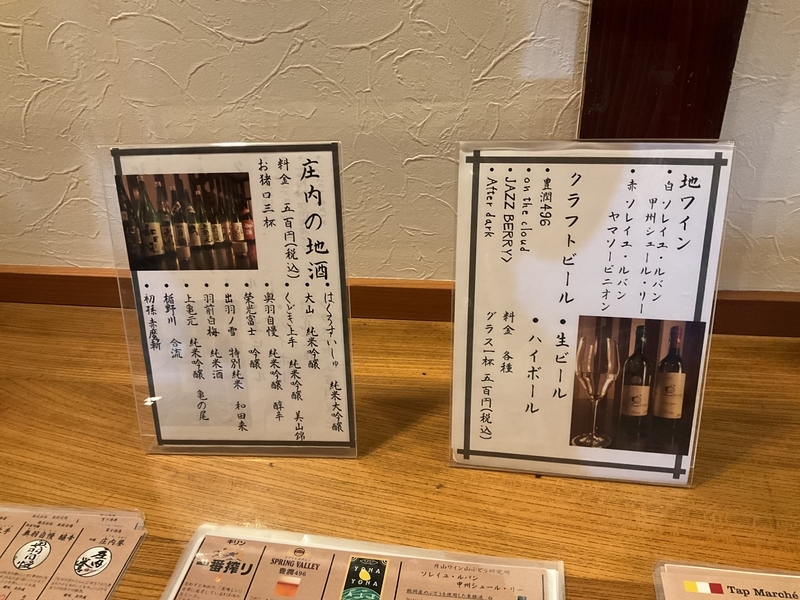 庄内の地酒
料金 五百円(税込)
お猪口三杯
・はくろすいしゅ 純米大吟醸
・大山 純米吟醸
・くどき上手 純米吟醸 美山錦
・奥羽自慢 純米吟醸 醇辛
・栄光冨士 吟醸
・出羽ノ雪 特別純米 和田来
・羽前白梅 純米酒
・上亀元 純米吟醸 亀の尾
・楯野川 合流
・初孫 赤魔斬
地ワイン
・白 ソレイユ・ルバン
甲州シュール・リー
・赤 ソレイユ・ルバン
ヤマソービニオン
クラフトビール
・豊潤496
・on the cloud
・JAZZ BERRY〉
・After dark
・生ビール
・ハイボール
料金 各種
グラス一杯 五百円(税込)
奥羽自慢
庄内誉
キリン
一番搾り
SPRING VALLEY
豊潤496
YONA YONA
月山ワイン山ぶどう研究所
ソレイユ・ルバン
甲州シュール・リー
Tap Marché